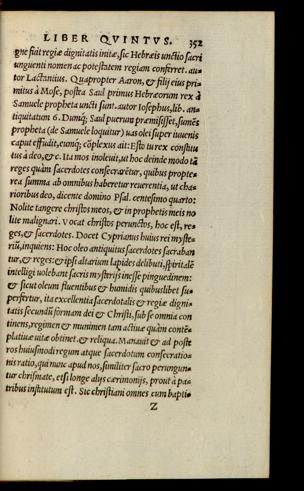 LIBER QVINTVS. 352
gne fuit regiæ dignitatis initæ, sic Hebræis unctio sacri
unguenti nomen ac potestatem regiam conferret. au-
tor Lactantius. Quapropter Aaron, & filij eius pri-
mitus à Mose, postra Saul primus Hebræorum rex à
Samuele propheta uncti sunt. autor Iosephus, lib. an-
tiquitatum 6. Dumq; Saul puerum præmisisset, sumẽs
propheta (de Samuele loquitur) uas olei super iuuenis
caput effudit, eumq; cõplexus ait: Esto tu rex constitu
tus à deo, &c. Ita mos inoleuit, ut hoc deinde modo tã
reges quàm sacerdotes consecrarẽtur, quibus propte-
rea summa ab omnibus haberetur reuerentia, ut cha-
rioribus deo, dicente domino Psal. centesimo quarto:
Nolite tangere christos meos, & in prophetis meis no
lite malignari. Vocat christos perunctos, hoc est, re-
ges, & sacerdotes. Docet Cyprianus huius rei myste-
riũ, inquiens: Hoc oleo antiquitus sacerdotes sacraban
tur, & reges: & ipsi altarium lapides delibuti, spiritalẽ
intelligi uolebant sacris mysterijs inesse pinguedinem:
& sicut oleum fluentibus & humidis quibuslibet su-
perfertur, ita excellentia sacerdotalis & regiæ digni-
tatis secundũ formam dei & Christi, sub se omnia con
tinens, regimen & munimen tam actiuæ quàm contẽ-
platiuæ uitæ obtinet, & reliqua. Manauit & ad poste
ros huiusmodi regum atque sacerdotum consecratio-
nis ratio, qui nunc apud nos, similiter sacro perungun-
tur chrismate, etsi longe alijs cæremonijs, prout à pa-
tribus institutum est. Sic christiani omnes cum bapti-
Z